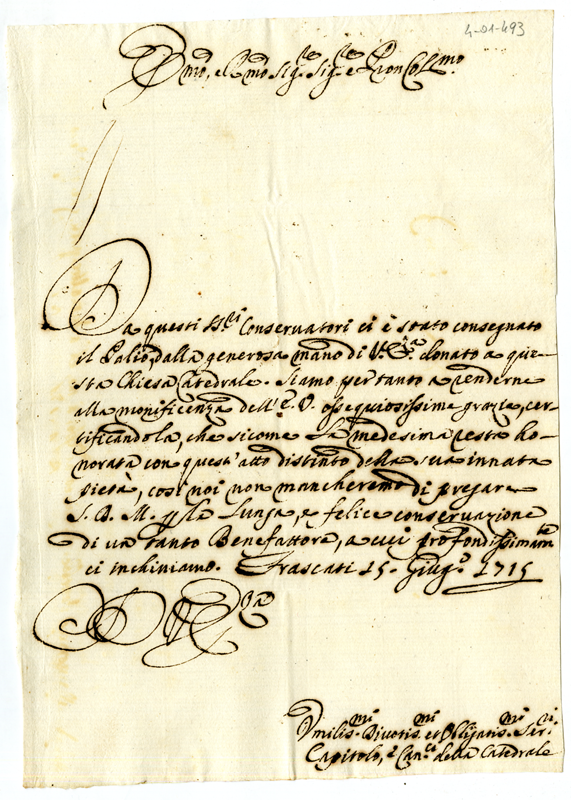 4-01-493
Emo, e Rmo Sig.re Sig.re e Pron Col.mo
Da questi SS.ri Conservatori ci è stato consegnato
il Palio, dalla generosa mano di V. Em.za donato a que-
sta Chiesa Catedrale. Siamo per tanto a renderne
alla monificenza dell'E. V. ossequiosissime grazie, cer-
tificandola, che sicome la medesima resta ho-
norata con quest'atto distinto della sua innata
pietà, così noi non mancheremo di pregare
S. D. M. per la lunga, e felice conservazione
di un tanto Benefattore, a cui profondissimam.te
ci inchiniamo. Frascati 15. Giug.o 1715
Di V. Em.za
Umilis.mi Divotis.mi et Obligatis.mi Ser.ri
Capitolo, e Can.ci della Catedrale